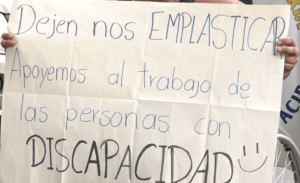 Dejen nos EMPLASTICAR
Apoyemos al trabajo de
las personas con
DISCAPACIDAD